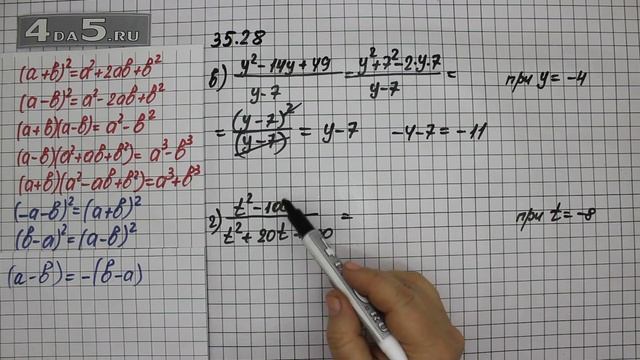 4DA5.RU
(a+b)²=a²+2ab+b²
(a-b)²=a²-2ab+b²
(a+b)(a-b)=a²-b²
(a-b)(a²+ab+b²)=a³-b³
(a+b)(a²-ab+b²)=a³+b³
(-a-b)²=(a+b)²
(b-a)²=(a-b)²
(a-b)=-(b-a)
35.28
в) (y²-14y+49)/(y-7) = (y²+7²-2·y·7)/(y-7) = при y=-4
= (y-7)²/(y-7) = y-7 -4-7=-11
г) t²-10 / t²+20t = при t=-8